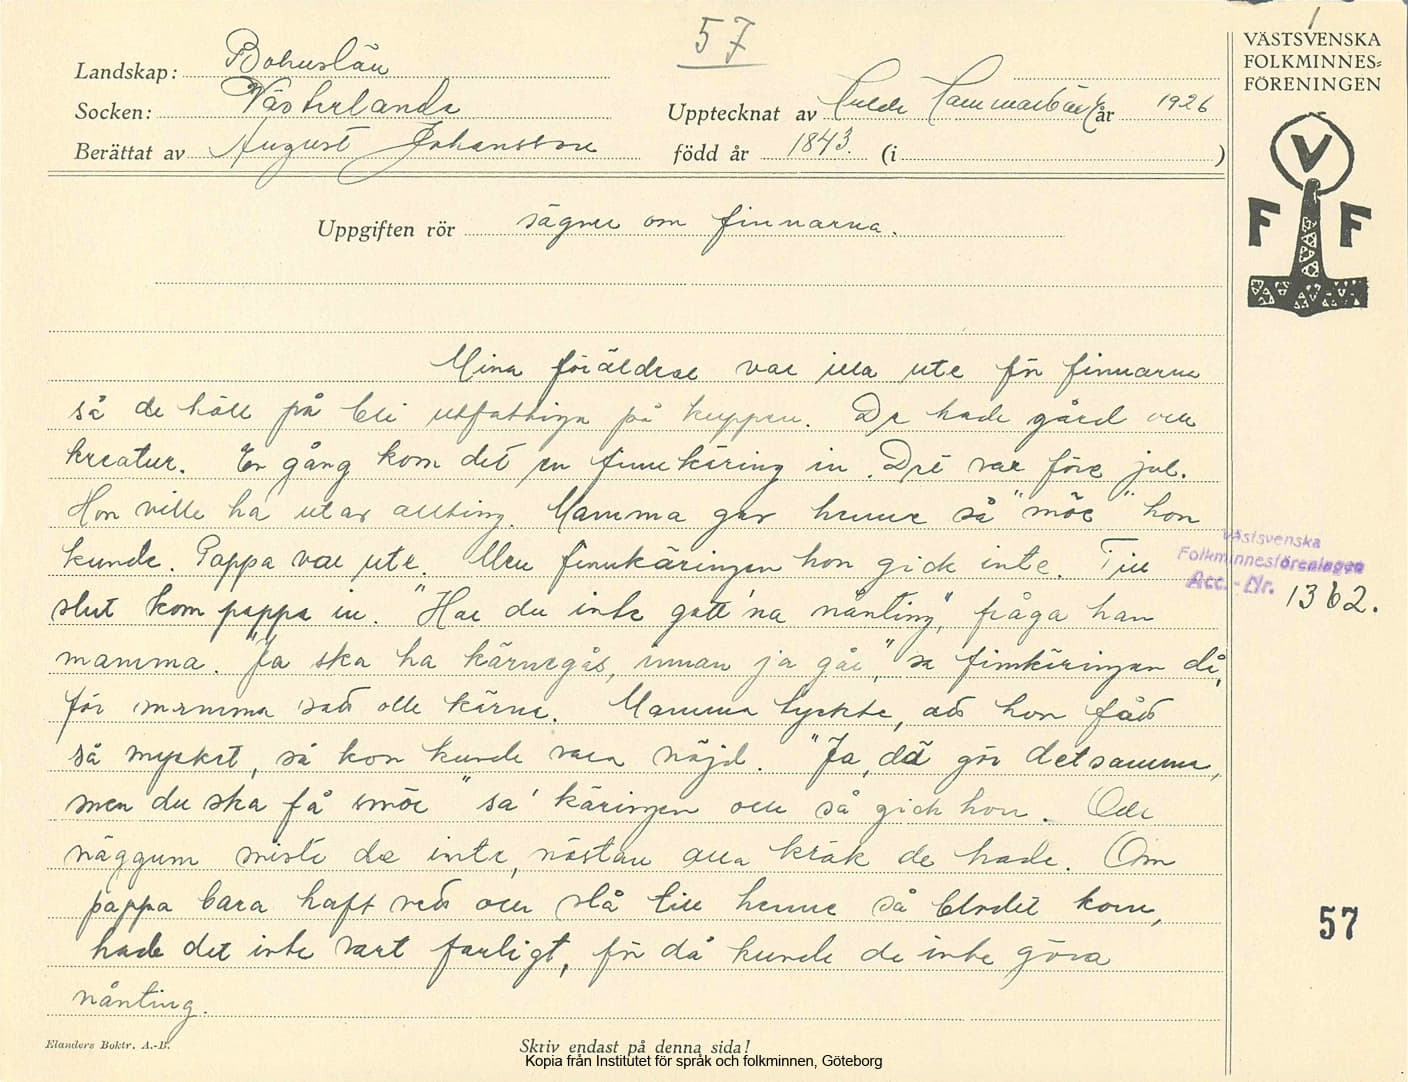 57
Landskap: Bohuslän
Socken: Västerlanda
Upptecknat av Hulda Hammarbäck år 1926
Berättat av August Johansson född år 1843. (i )
VÄSTSVENSKA
FOLKMINNES-
FÖRENINGEN
V
F F
Uppgiften rör sägner om finnarna.
Mina föräldrar var illa ute för finnarna
så de höll på bli utfattiga på kuppen. De hade gård och
kreatur. En gång kom det en finnkäring in. Det var före jul.
Hon ville ha utav allting. Mamma gav henne så "möe" hon
kunde. Pappa var ute. Men finnkäringen hon gick inte. Till
slut kom pappa in. "Har du inte gett 'na nånting", fråga han
mamma. "Ja ska ha kärnegås, innan ja går," sa finnkäringen då,
för mamma satt olle kärna. Mamma tyckte, att hon fått
så mycket, så hon kunde vara nöjd. "Ja, dä gör detsamma,
men du ska få smör" sa' käringen och så gick hon. Ode
näggum miste de inte, nästan alla kräk de hade. Om
pappa bara haft vett och slå till henne så blodet kom,
hade det inte vart farligt, för då kunde de inte göra
nånting.
Västsvenska
Folkminnesföreningen
Acc. - Nr. 1362.
57
Elanders Boktr. A.-B.
Skriv endast på denna sida!
Kopia från Institutet för språk och folkminnen, Göteborg